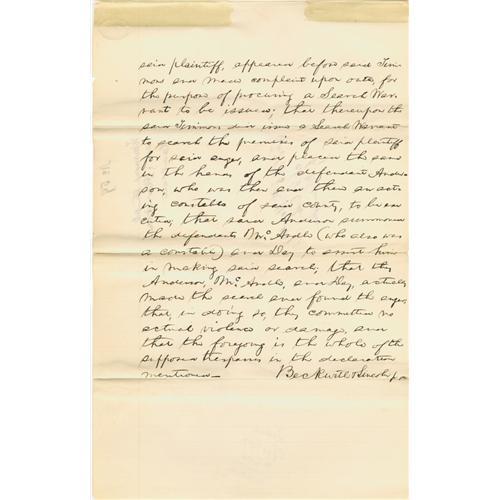 said plaintiff, appeared before said Tim-
mons and made complaint upon oath, for
the purpose of procuring a Search War-
rant to be issued; that thereupon the
said Timmons did issue a Search Warrant
to search the premises of said plaintiff
for said sugar, and placed the same
in the hands of the defendant Ander-
son, who was then and there an act-
ing constable of said county, to be exe-
cuted; that said Anderson summoned
the defendants (who also was
a constable) and Day to assist him
in making said search; that they
Anderson, and Day, actually
made the search and found the sugar,
that, in doing so, they committed no
actual violence or damage, and
that the foregoing is the whole of the
supposed trespasses in the declaration
mentioned—
Beckwith & Lincoln p.d.